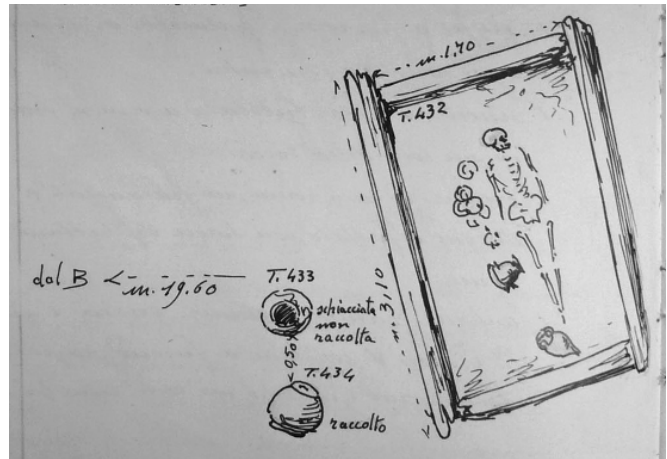 m. 1.70
T. 432
m. 3,10
dal B
m. 19.60
T. 433
schiacciata
non
raccolta
0,50
T. 434
raccolto